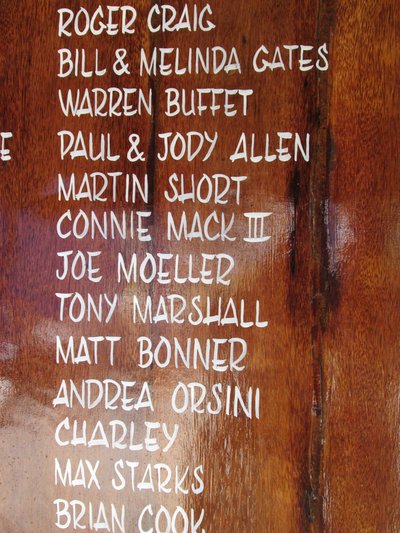 ROGER CRAIG
BILL & MELINDA GATES
WARREN BUFFET
E PAUL & JODY ALLEN
MARTIN SHORT
CONNIE MACK III
JOE MOELLER
TONY MARSHALL
MATT BONNER
ANDREA ORSINI
CHARLEY
MAX STARKS
BRIAN COOK